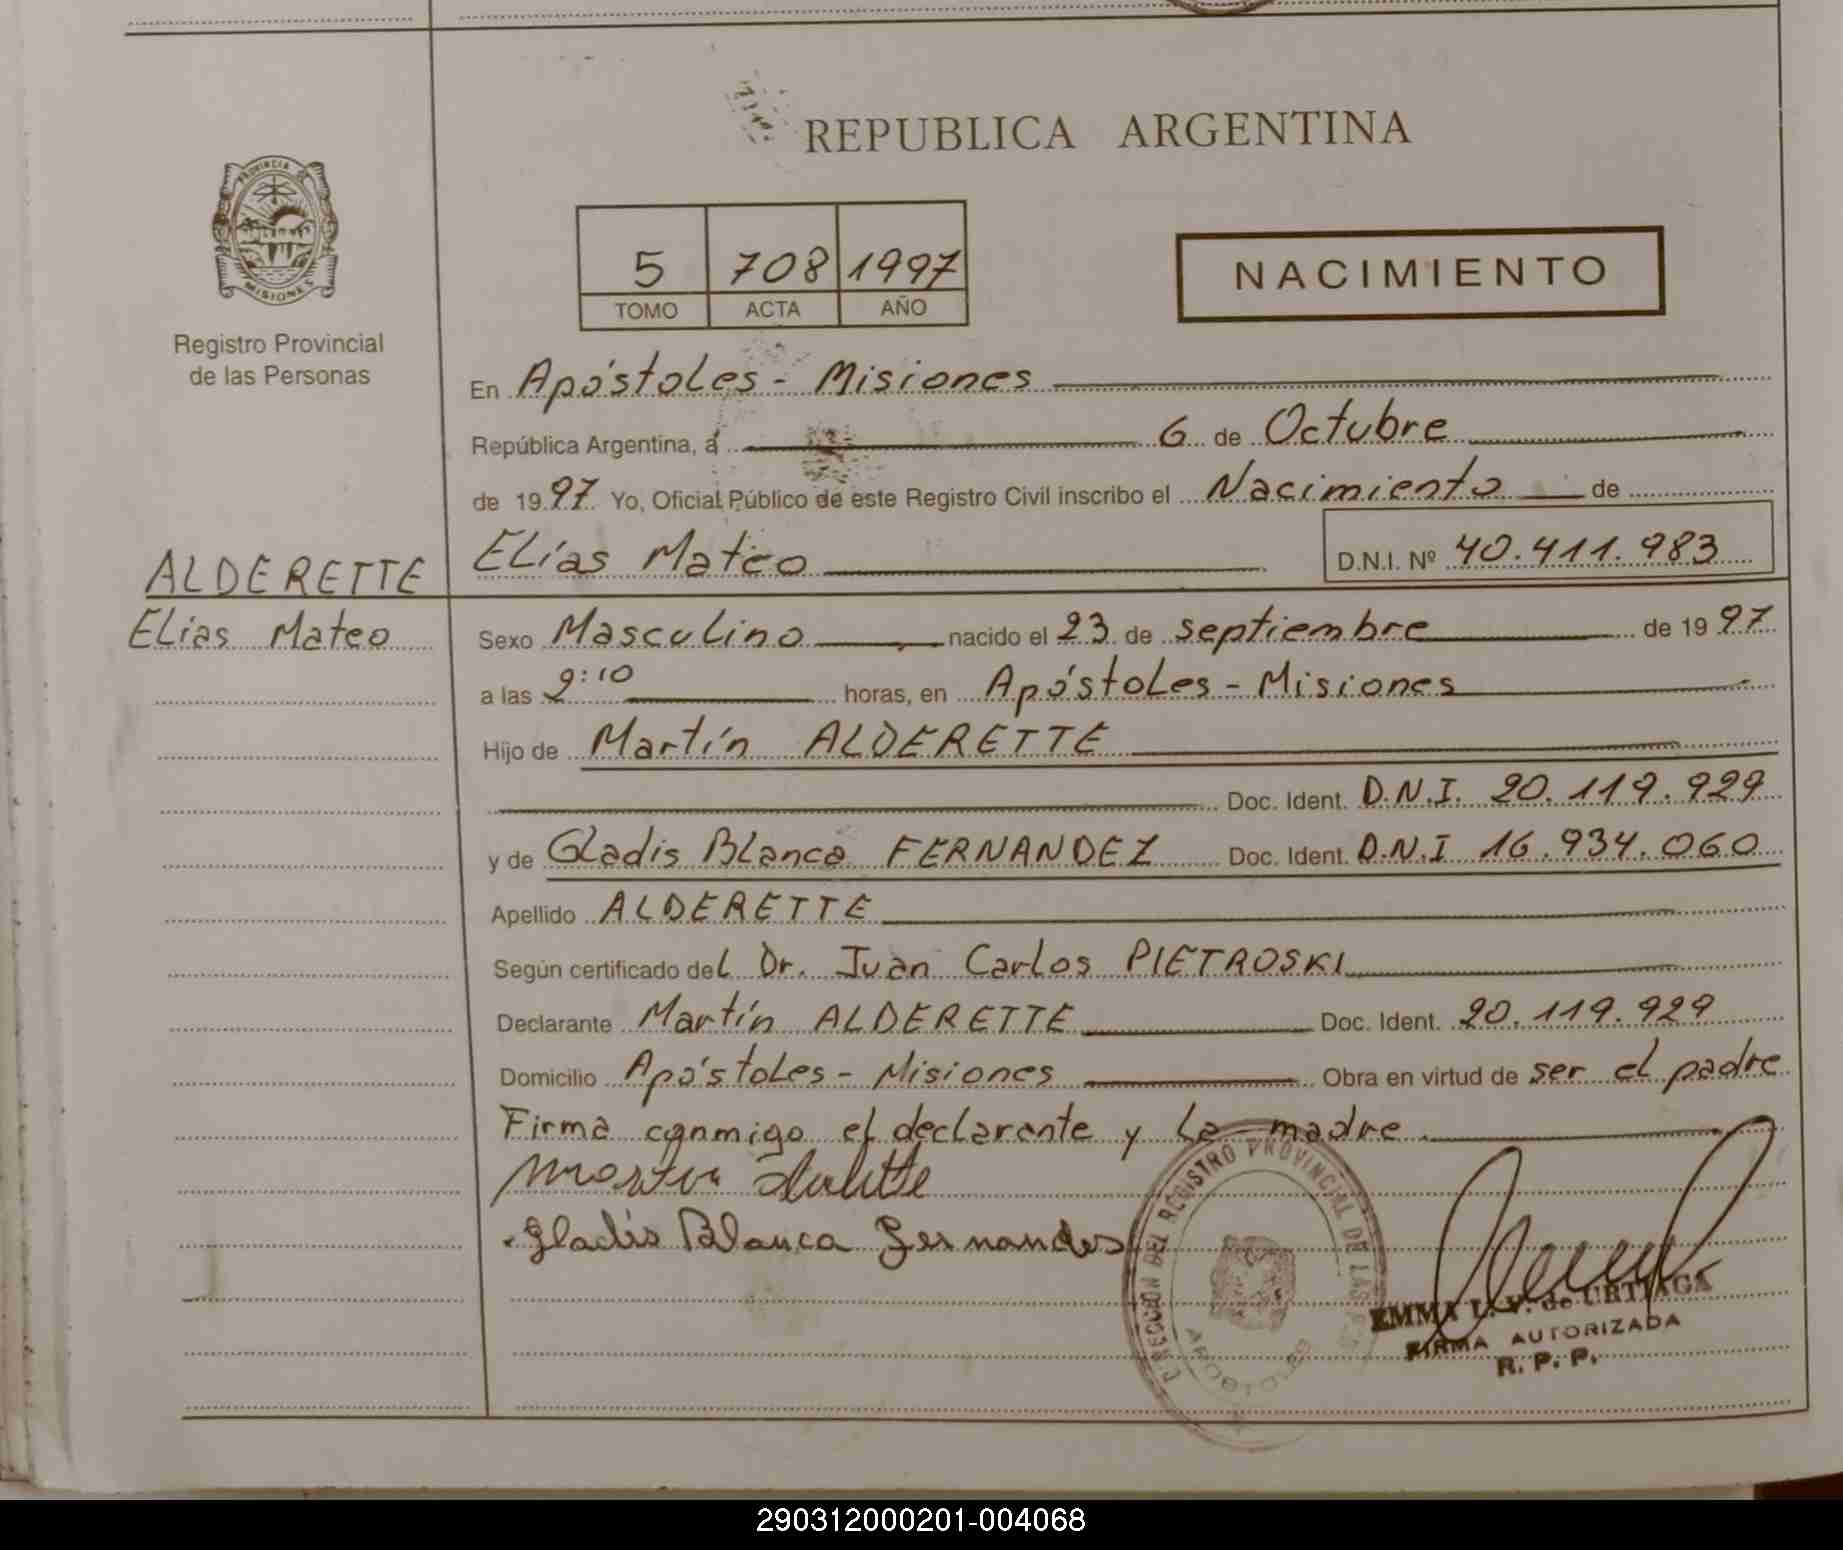 REPUBLICA ARGENTINA
PROVINCIA DE MISIONES
Registro Provincial
de las Personas
5 708 1997
TOMO ACTA AÑO
NACIMIENTO
En Apóstoles - Misiones
República Argentina, a 6 de Octubre
de 1997 Yo, Oficial Público de este Registro Civil inscribo el Nacimiento de
Elías Mateo D.N.I. Nº 40.411.983
ALDERETTE
Elías Mateo
Sexo Masculino nacido el 23 de septiembre de 1997
a las 9:10 horas, en Apóstoles - Misiones
Hijo de Martín ALDERETTE
Doc. Ident. D.N.I. 20.119.929
y de Gladis Blanca FERNANDEZ Doc. Ident. D.N.I 16.934.060
Apellido ALDERETTE
Según certificado del Dr. Juan Carlos PIETROSKI
Declarante Martín ALDERETTE Doc. Ident. 20.119.929
Domicilio Apóstoles - Misiones Obra en virtud de ser el padre
Firma conmigo el declarante y la madre
Martin
Gladis Blanca Fernandes
DIRECCION DEL REGISTRO PROVINCIAL DE LAS
APOSTOLES
EMMA L. V. de URTIAGA
FIRMA AUTORIZADA
R. P. P.
290312000201-004068